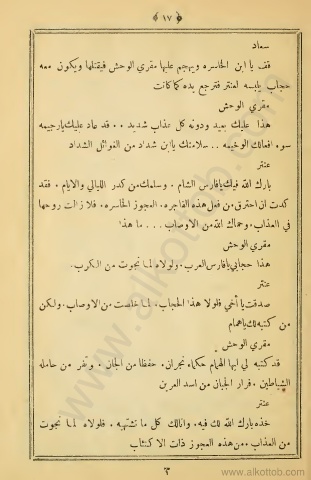 ﴿ ١٧ ﴾
سعاد
قف يا ابن الخاسره ويهجم عليها مقري الوحش فيقتلها ويكون معه
حجاب يلبسه لعنتر فترجع يده كما كانت
مقري الوحش
هذا عليك بعيد ودونه كل عذاب شديد . . قد عاد عليك يارجيمه
سوء افعالك الوخيمه . . سلامتك يا ابن شداد من الغوائل الشداد
عنتر
بارك الله فيك يافارس الشام . وسلمك من كدر الليالي والايام . فقد
كدت ان احترق من فعل هذه الفاجره . العجوز الخاسره . فلا زالت روحها
في العذاب . وحماك الله من الاوصاب . . . ما هذا
مقري الوحش
هذا حجابي يافارس العرب . ولولاه لما نجوت من الكرب .
عنتر
صدقت يا أخي فلولا هذا الحجاب . لما خلصت من الاوصاب . ولكن
من كتبه لك ياهمام
مقري الوحش
قد كتبه لي ايها الهمام حكماء نجران . حفظا من الجان . وتفر من حامله
الشياطين . فرار الجبان من اسد العرين
عنتر
خذه بارك الله لك فيه . وانالك كل ما تشتهيه . فلولاه لما نجوت
من العذاب . من هذه العجوز ذات الاكتئاب
٣
www.alkottob.com